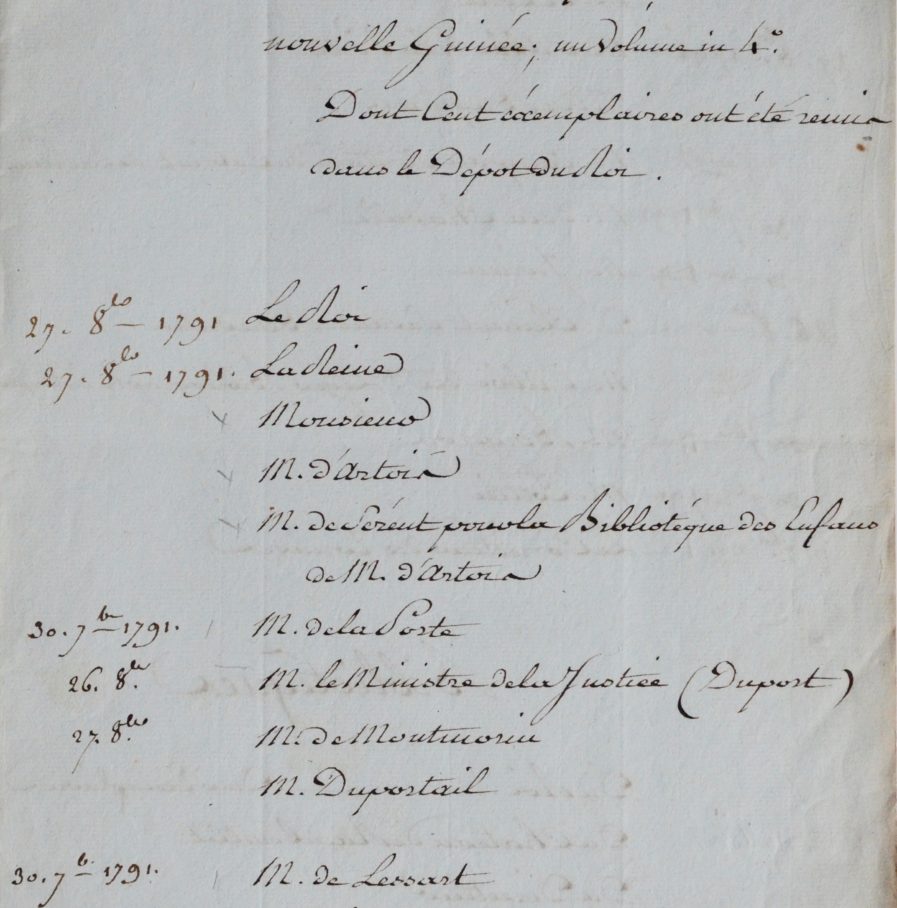 nouvelle Guinée; un Volume in 4°.
Dont Cent éxemplaires ont été remis
dans le Dépot du Roi.
27. 8bre 1791 Le Roi
27. 8bre 1791. La Reine
Monsieur
M. d'Artois
M. de Sérent pour la Bibliotéque des Enfans
de M. d'Artois
30. 7bre 1791. M. de la Porte
26. 8bre. M. le Ministre de la Justice (Duport)
27. 8bre. M. de Montmorin
M. Duportail
30. 7bre 1791. M. de Lessart